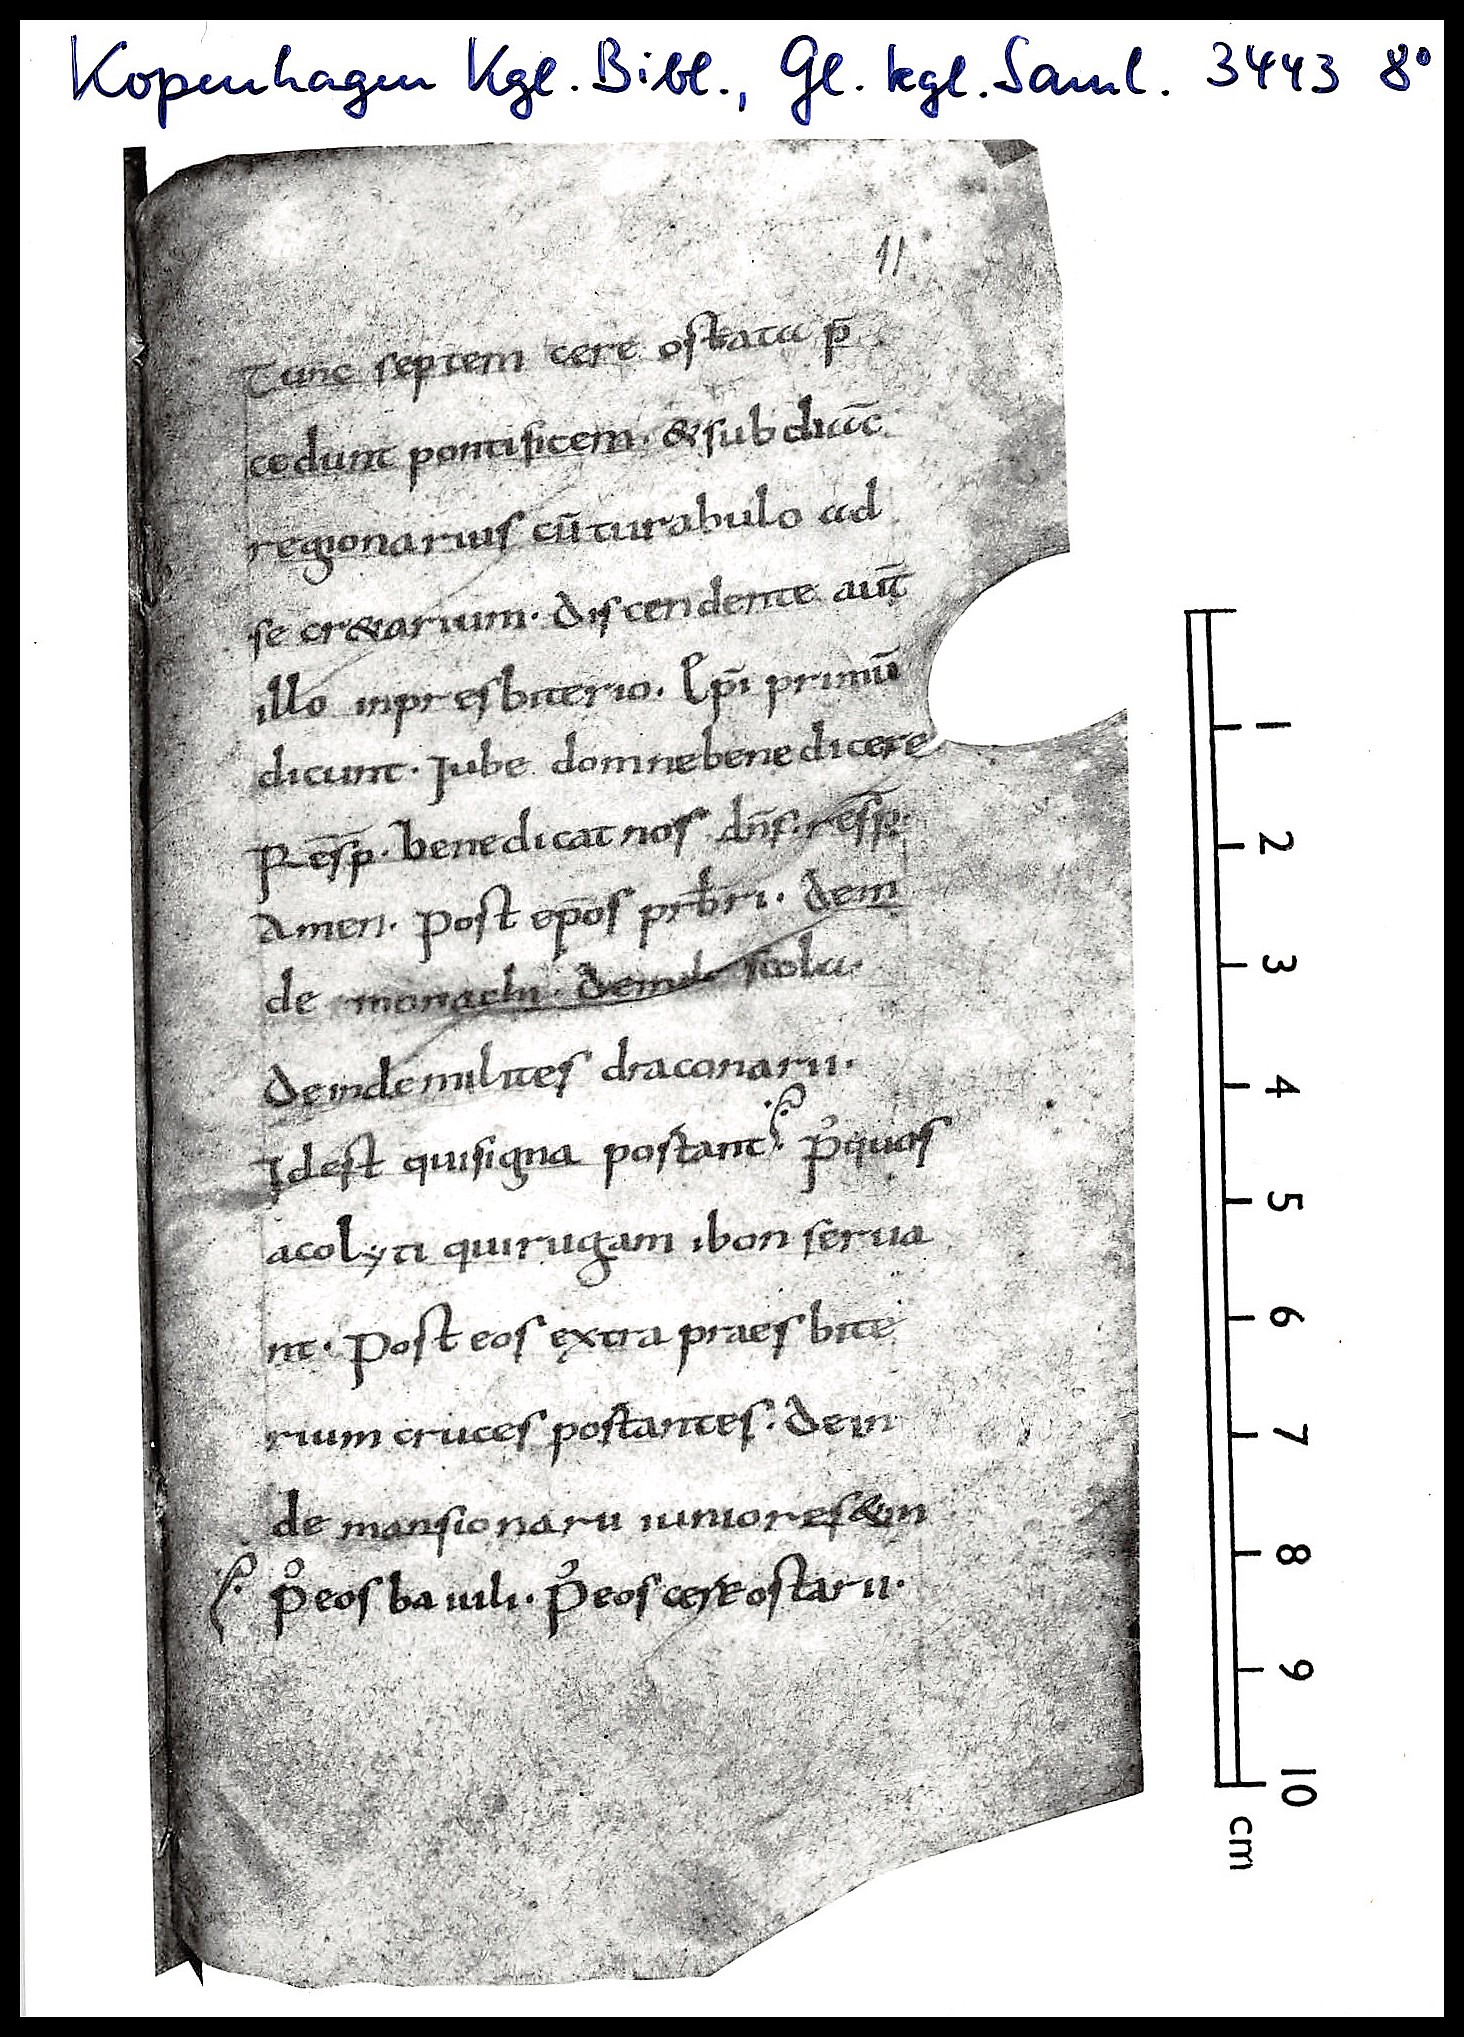 Kopenhagen Kgl. Bibl., Gl. kgl. Saml. 3443 8°
11
Tunc septem cere ostata p̄
cedunt pontificem. & subdiac̄
regionarius cū turabulo ad
secr&arium. discendente aut̄
illo inpresbiterio. Ep̄i primū
dicunt. Jube domne benedicere
Resp̄. benedicat nos dn̄s. resp̄.
Amen. Post ep̄os prb̄ri. dein
de monachi. deinde scola.
deinde milites draconarii.
Idest qui signa postant. P̄ quos
acolyti qui rugam ibon serua
nt. Post eos extra praesbite
rium cruces postantes. dein
de mansionarii iuniores & in
P̄ eos baiuli. P̄ eos cereostarii.
1
2
3
4
5
6
7
8
9
10
cm